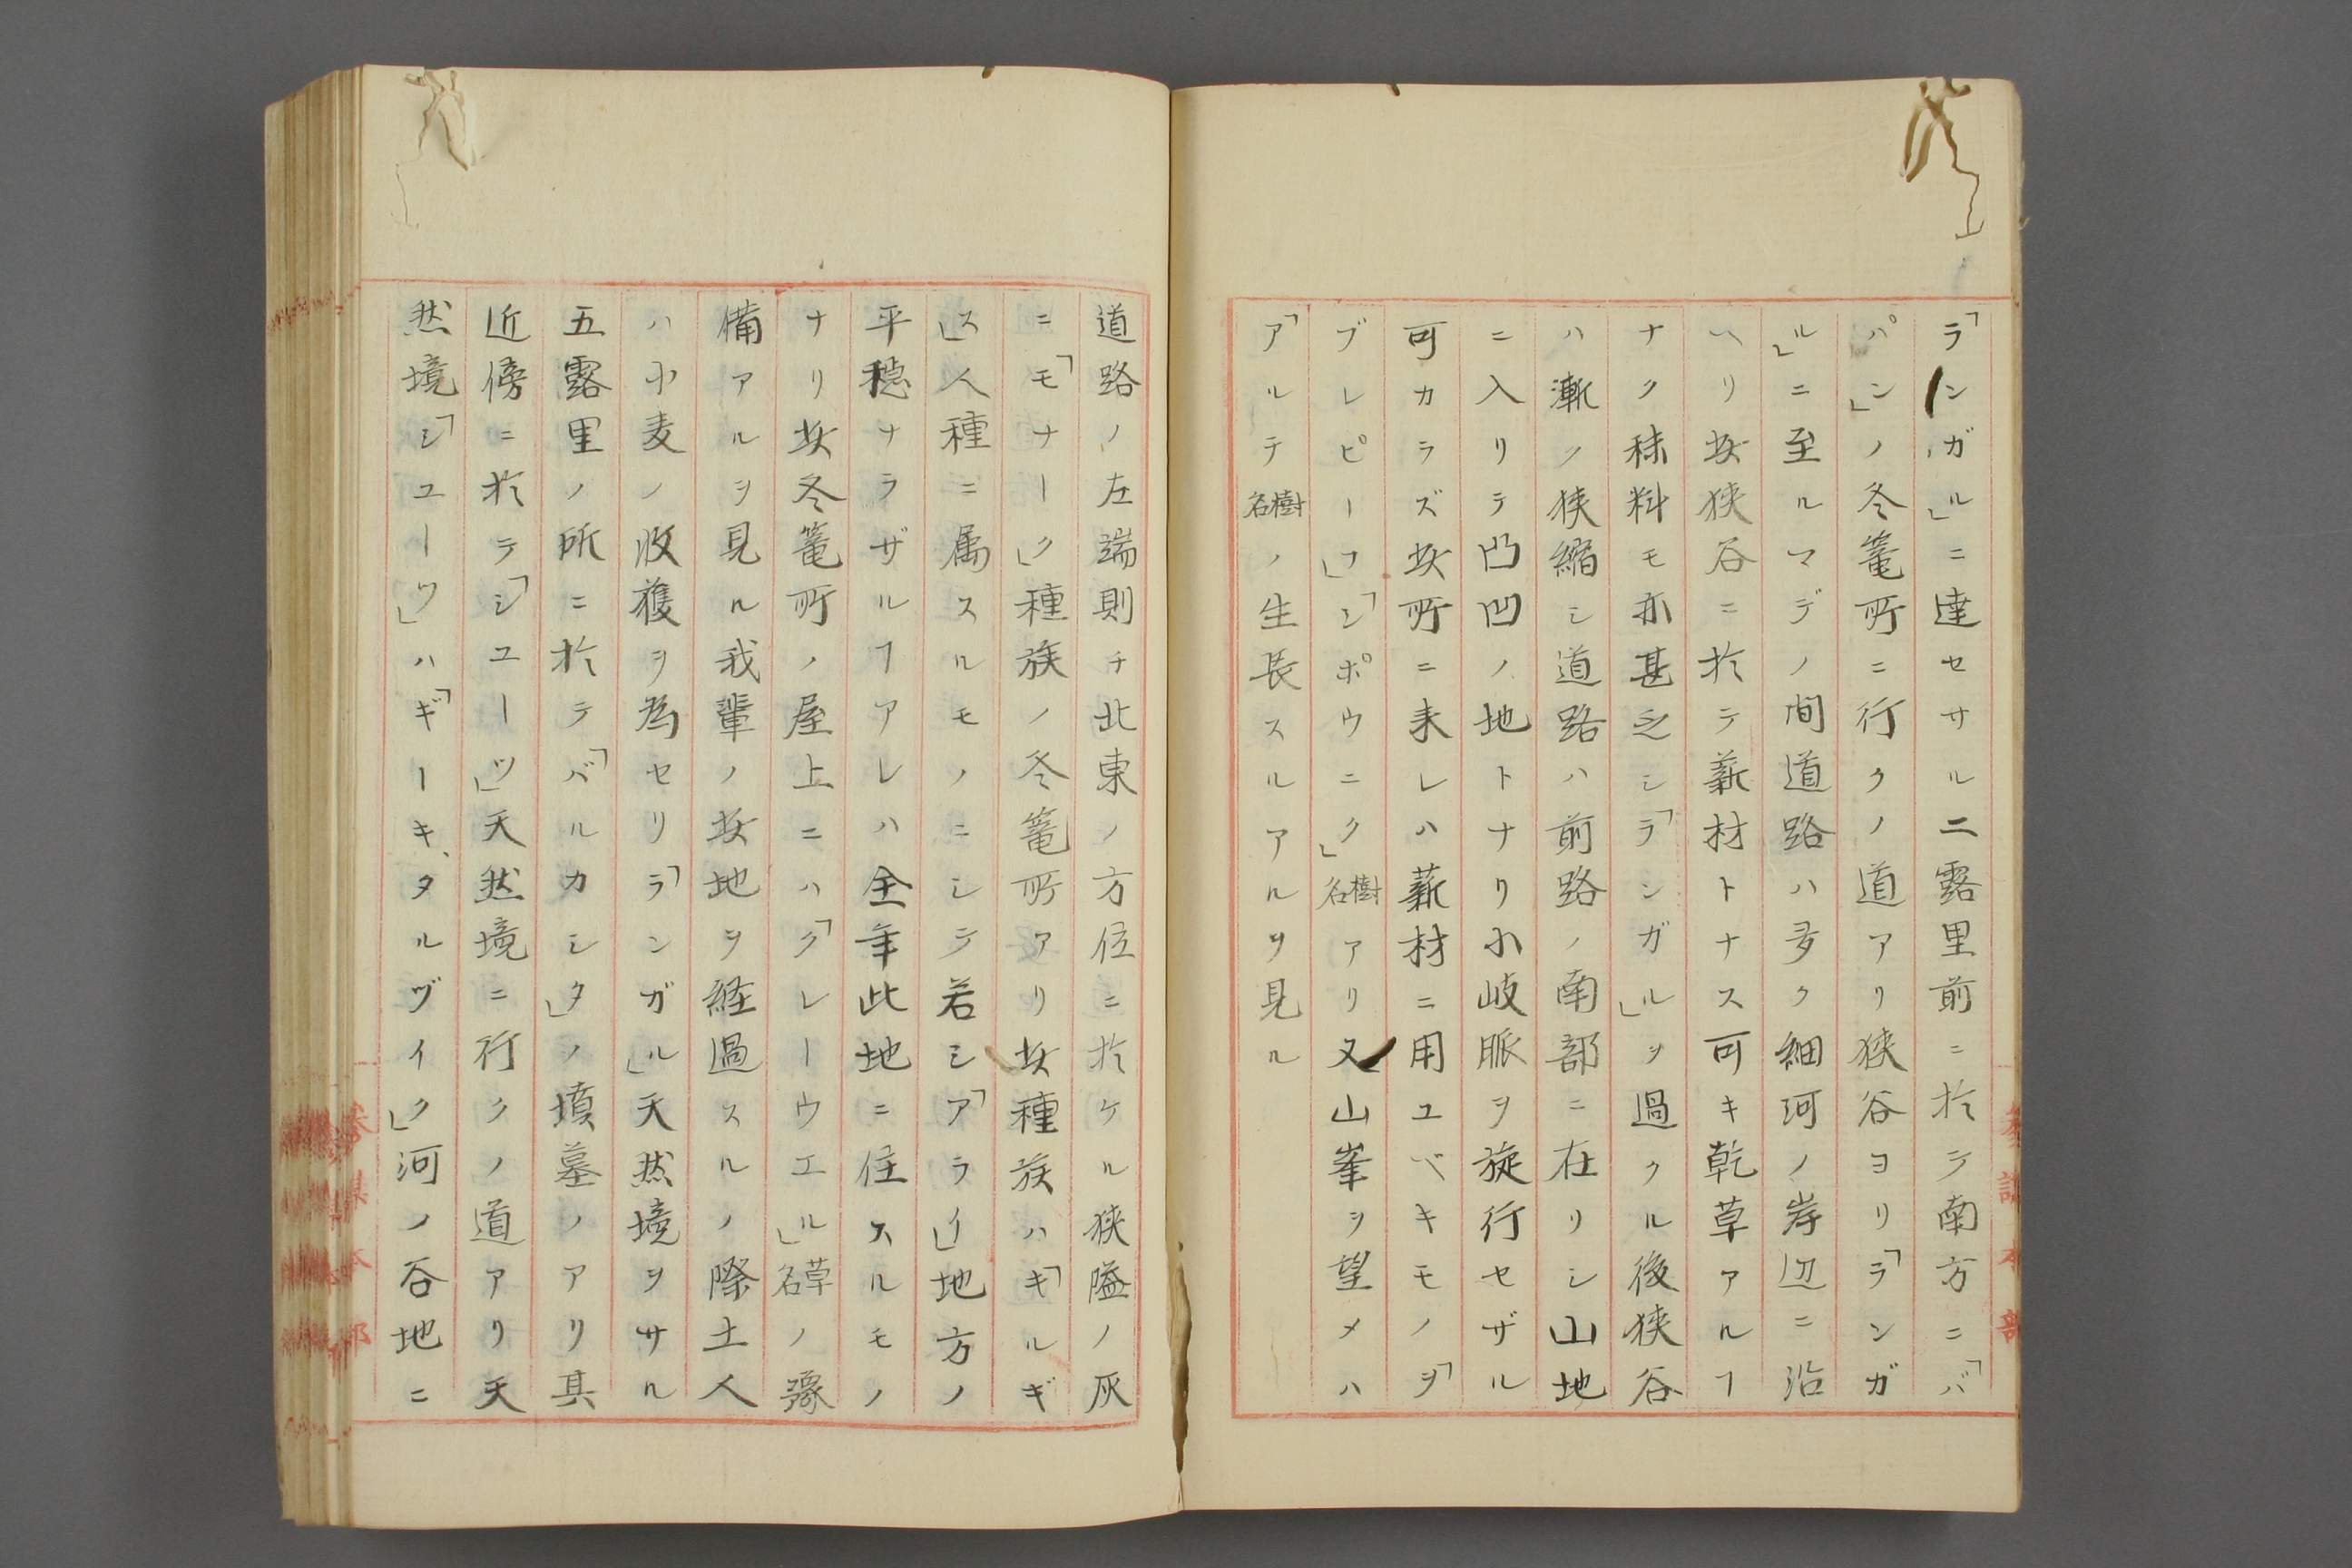 「ランガル」ニ達セサル二露里前ニ於テ南方ニ「バ
パン」ノ冬篭所ニ行クノ道アリ狭谷ヨリ「ランガ
ル」ニ至ルマデノ間道路ハ多ク細河ノ岸辺ニ沿
ヘリ玆狭谷ニ於テ薪材トナス可キ乾草アルヿ
ナク秣料モ亦甚乏シ「ランガル」ヲ過クル後狭谷
ハ漸ク狭縮シ道路ハ前路ノ南部ニ在リシ山地
ニ入リテ凸凹ノ地トナリ小岐脈ヲ旋行セザル
可カラズ玆所ニ来レハ薪材ニ用ユベキモノ「ヲ
ブレピーフ」「シポウニク」樹名アリ又山峯ヲ望メハ
「アルテ樹名ノ生長スルアルヲ見ル
道路ノ左端則チ北東ノ方位ニ於ケル狭隘ノ灰
ニ「モナーク」種族ノ冬篭所アリ玆種族ハ「キルギ
ス」人種ニ属スルモノニシテ若シ「アライ」地方ノ
平穏ナラザルヿアレハ全年此地ニ住スルモノ
ナリ玆冬篭所ノ屋上ニハ「クレーウエル」草名ノ豫
備アルヲ見ル我輩ノ玆地ヲ経過スルノ際土人
ハ小麦ノ收獲ヲ為セリ「ランガル」天然境ヲサル
五露里ノ所ニ於テ「バルカシタ」ノ墳墓ノアリ其
近傍ニ於テ「シユーツ」天然境ニ行クノ道アリ天
然境「シユーツ」ハ「ギーキ、タルヅイク」河ノ谷地ニ
参謀本部